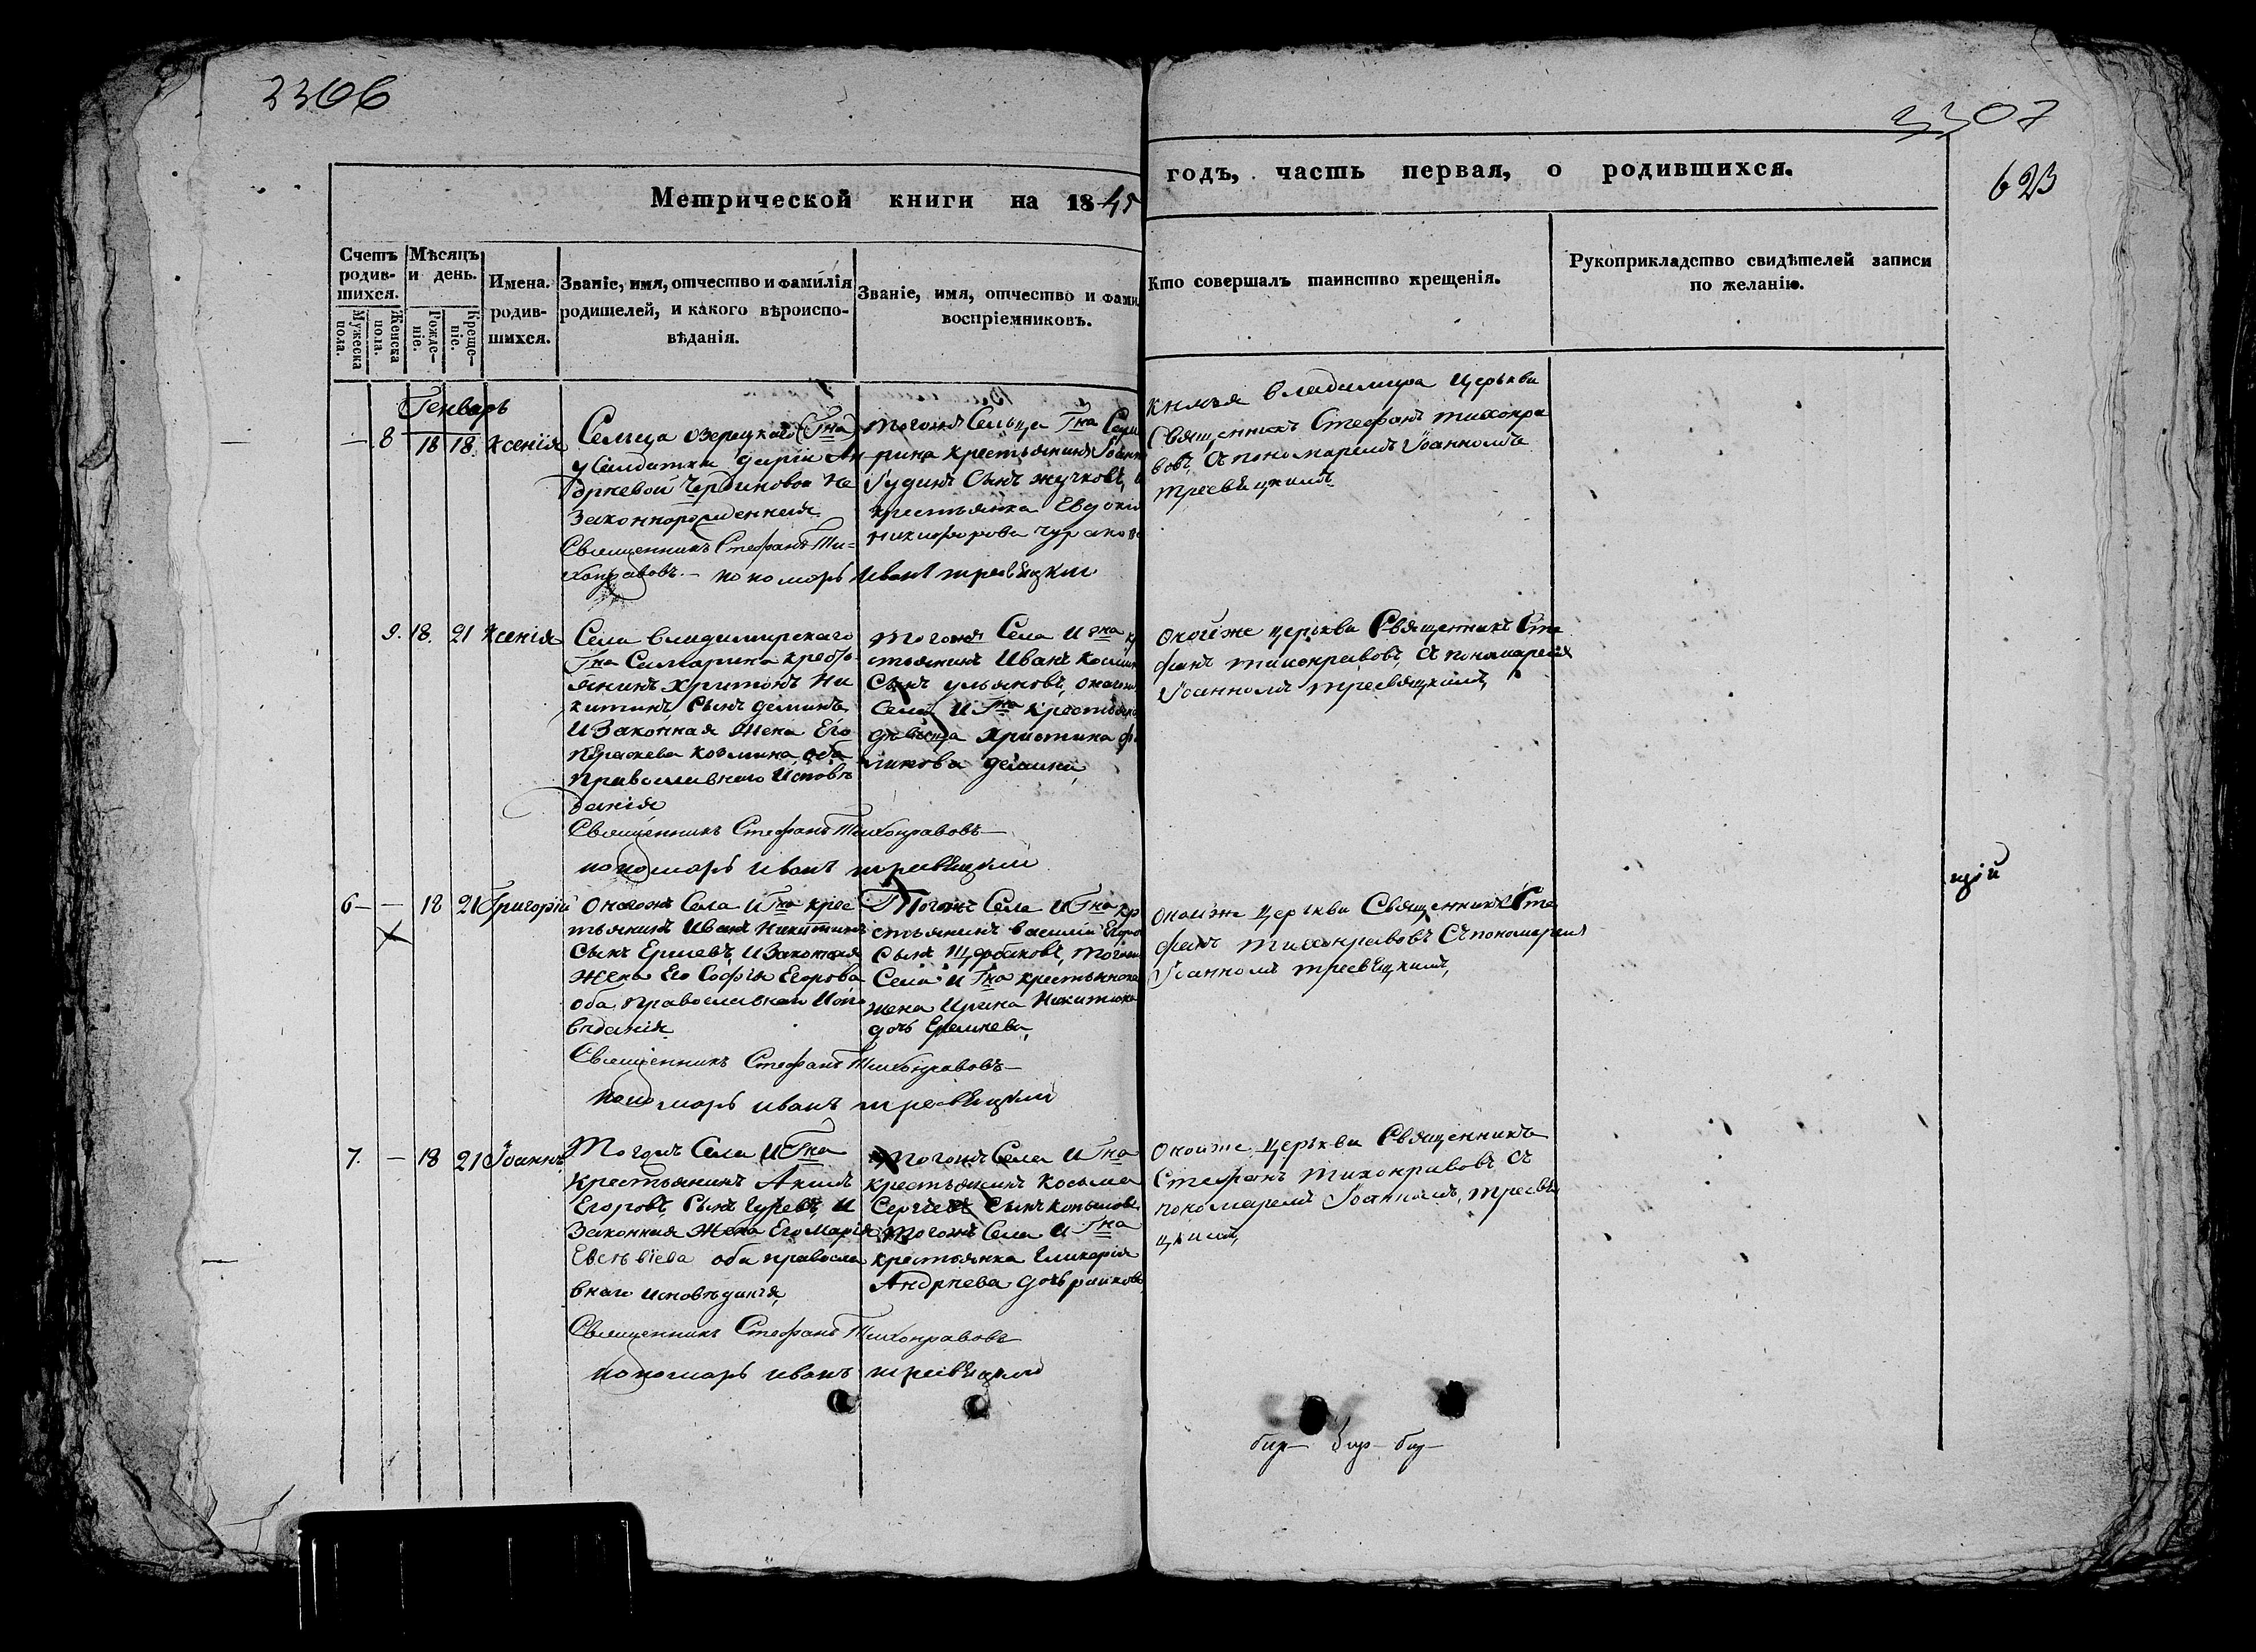 2306
3307
623
Метрической книги на 1845
годъ, часть первая, о родившихся.
Счетъ родив-шихся.
Мужеска пола.
Женска пола.
Мѣсяцъ и день.
Рожде-ніе.
Креще-ніе.
Имена родив-шихся.
Званіе, имя, отчество и фамилія
родителей, и какого вѣроиспо-
вѣданія.
Званіе, имя, отчество и фами
воспріемниковъ.
Кто совершалъ таинство крещенія.
Рукоприкладство свидѣтелей записи
по желанію.
Генварь
— 8 18 18 Ксенія
Сельца Озерецкаго (Гна)
у Солдатки Дарьи Ан
дреевой не
Законнорожденная
Священникъ Стефанъ Ти=
хонравовъ.— пономарь Иванъ тресвяцкии
Тогожъ Сельца Гна Сама
рина крестьянинъ Іоанн
Іудинъ Сынъ жучковъ,
крестьянка Евдокія
никифорова
князя владимира Церькви
Священникъ Стефанъ тихонра
вовъ, Съ пономаремъ Іоанномъ
тресвяцкимъ
9. 18. 21 Ксенія
Села владимирскаго
Гна Самарина крестья
янинъ Харитонъ Ни
китинъ Сынъ деминъ
И Законная Жена Его
Козмина, оба
Православнаго Исповѣ
данія
Священникъ Стефанъ Тихонравовъ—
пономарь Иванъ тресвяцкии
Тогожъ Села И Гна кр
стьянинъ Иванъ Козмин
Сынъ ульяновъ, онагожъ
Села И Гна крестьянс
дѣвица Христина
демина,
Оной же церькви Священникъ Сте
фанъ тихонравовъ, Съ пономаремъ
Іоанномъ тресвяцкимъ,
6 — — 18 21 Григорій
Онагожъ Села И Гна крес
тьянинъ Иванъ Никитинъ
Сынъ И Законная
Жена Его Софія Егорова
оба православнаго Испо
вѣданія
Священникъ Стефанъ Тихонравовъ—
пономарь Иванъ тресвяцкии
Тогожъ Села И Гна кр
стьянинъ василій Егоро
Сынъ Щербаковъ, тогожъ
Села И Гна крестьянска
жена Ирина Никитина
дочь Еремѣева,
Оной же Церькви Священникъ Сте
фанъ тихонравовъ Съ пономаремъ
Іоанномъ тресвяцкимъ,
цій
7. — 18 21 Іоаннъ
Тогожъ Села И Гна
Крестьянинъ Акимъ
Егоровъ Сынъ Гурьевъ, И
Законная Жена Его Марія
Евсѣвіева оба правосла
внаго исповѣданія,
Священникъ Стефанъ Тихонравовъ
пономарь Иванъ тресвяцкии
Тогожъ Села И Гна
крестьянинъ Косьма
Сергіевъ Сынъ
Тогожъ Села И Гна
крестьянка Гликерія
Андрѣева дочь
Оной же Церькви Священникъ
Стефанъ тихонравовъ Съ
пономаремъ Іоанномъ, тресвя
цкимъ,